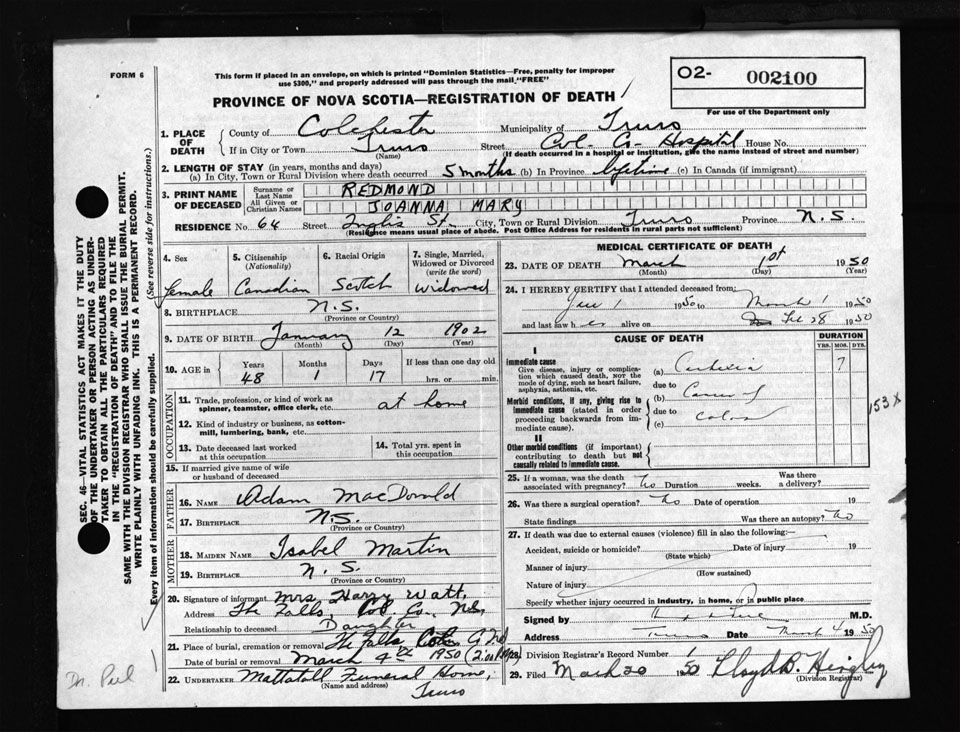 FORM 6
This form if placed in an envelope, on which is printed "Dominion Statistics—Free, penalty for improper
use $300," and properly addressed will pass through the mail, "FREE"
O2- 002100
For use of the Department only
PROVINCE OF NOVA SCOTIA—REGISTRATION OF DEATH
1. PLACE OF DEATH
County of Colchester Municipality of Truro
If in City or Town Truro (Name) Street Col. Co. Hospital House No.
(If death occurred in a hospital or institution, give the name instead of street and number)
2. LENGTH OF STAY (in years, months and days)
(a) In City, Town or Rural Division where death occurred 5 months (b) In Province lifetime (c) In Canada (if immigrant)
3. PRINT NAME OF DECEASED
Surname or Last Name REDMOND
All Given or Christian Names JOANNA MARY
RESIDENCE No. 64 Street Inglis St. City, Town or Rural Division Truro Province N.S.
(Residence means usual place of abode. Post Office Address for residents in rural parts not sufficient)
4. Sex female
5. Citizenship (Nationality) Canadian
6. Racial Origin Scotch
7. Single, Married, Widowed or Divorced (write the word) Widowed
8. BIRTHPLACE N.S.
(Province or Country)
9. DATE OF BIRTH January 12 1902
(Month) (Day) (Year)
10. AGE in Years 48 Months 1 Days 17 If less than one day old hrs. or min.
OCCUPATION
11. Trade, profession, or kind of work as spinner, teamster, office clerk, etc. at home
12. Kind of industry or business, as cotton-mill, lumbering, bank, etc.
13. Date deceased last worked at this occupation
14. Total yrs. spent in this occupation
15. If married give name of wife or husband of deceased
FATHER
16. NAME Adam MacDonald
17. BIRTHPLACE N.S.
(Province or Country)
MOTHER
18. MAIDEN NAME Isabel Martin
19. BIRTHPLACE N.S.
(Province or Country)
20. Signature of informant Mrs. Harry Watt,
Address The Falls, Col. Co., N.S.
Relationship to deceased Daughter
21. Place of burial, cremation or removal The Falls
Date of burial or removal March 4th 1950
22. UNDERTAKER Mattatall Funeral Home,
(Name and address) Truro
MEDICAL CERTIFICATE OF DEATH
23. DATE OF DEATH March 1st 1950
(Month) (Day) (Year)
24. I HEREBY CERTIFY that I attended deceased from:
1 1950 to March 1 1950
and last saw her alive on Feb 28 1950
CAUSE OF DEATH
DURATION
YRS. MOS. DYS.
I
Immediate cause
Give disease, injury or complication which caused death, NOT the mode of dying, such as heart failure, asphyxia, asthenia, etc.
(a) Cachexia 7
due to
Morbid conditions, if any, giving rise to immediate cause (stated in order proceeding backwards from immediate cause).
(b) Cancer of
due to Colon
(c)
153X
II
Other morbid conditions (if important) contributing to death but not causally related to immediate cause.
25. If a woman, was the death associated with pregnancy? No Duration weeks. Was there a delivery?
26. Was there a surgical operation? No Date of operation 19
State findings Was there an autopsy? No
27. If death was due to external causes (violence) fill in also the following:—
Accident, suicide or homicide? Date of injury 19
(State which)
Manner of injury
(How sustained)
Nature of injury
Specify whether injury occurred in industry, in home, or in public place
Signed by M.D.
Address Truro Date March 4 1950
28. Division Registrar's Record Number 1
29. Filed March 20 1950 Lloyd B.
(Division Registrar)
SEC. 46—VITAL STATISTICS ACT MAKES IT THE DUTY
OF THE UNDERTAKER OR PERSON ACTING AS UNDER-
TAKER TO OBTAIN ALL THE PARTICULARS REQUIRED
IN THE "REGISTRATION OF DEATH" AND TO FILE THE
SAME WITH THE DIVISION REGISTRAR WHO SHALL ISSUE THE BURIAL PERMIT.
WRITE PLAINLY WITH UNFADING INK. THIS IS A PERMANENT RECORD.
Every item of information should be carefully supplied. (See reverse side for instructions.)